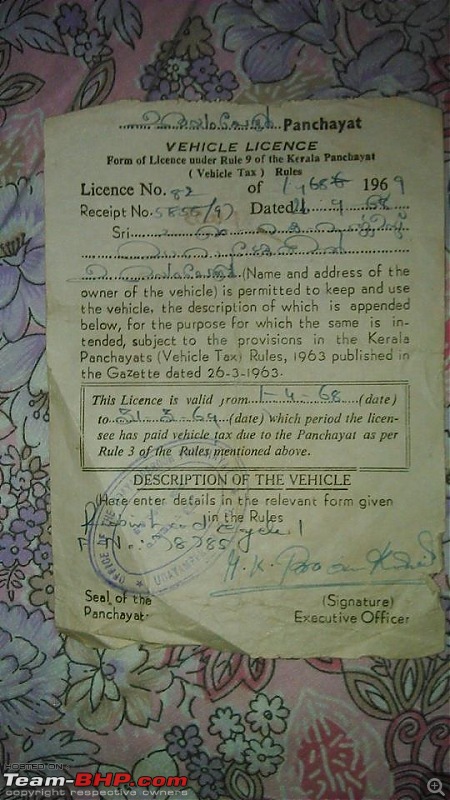 Panchayat
VEHICLE LICENCE
Form of Licence under Rule 9 of the Kerala Panchayat
( Vehicle Tax ) Rules
Licence No. 82 of 1968 1969
Receipt No. 5855/97 Dated 68
Sri
(Name and address of the
owner of the vehicle) is permitted to keep and use
the vehicle, the description of which is appended
below, for the purpose for which the same is in-
tended, subject to the provisions in the Kerala
Panchayats (Vehicle Tax) Rules, 1963 published in
the Gazette dated 26-3-1963.
This Licence is valid from 1-4-68 (date)
to 31-3-69 (date) which period the licen-
see has paid vehicle tax due to the Panchayat as per
Rule 3 of the Rules mentioned above.
DESCRIPTION OF THE VEHICLE
(Here enter details in the relevant form given
in the Rules
cycle 1
F. No.
OFFICE OF THE
Seal of the
Panchayat.
(Signature)
Executive Officer
HOSTED ON
Team-BHP.com
copyright respective owners